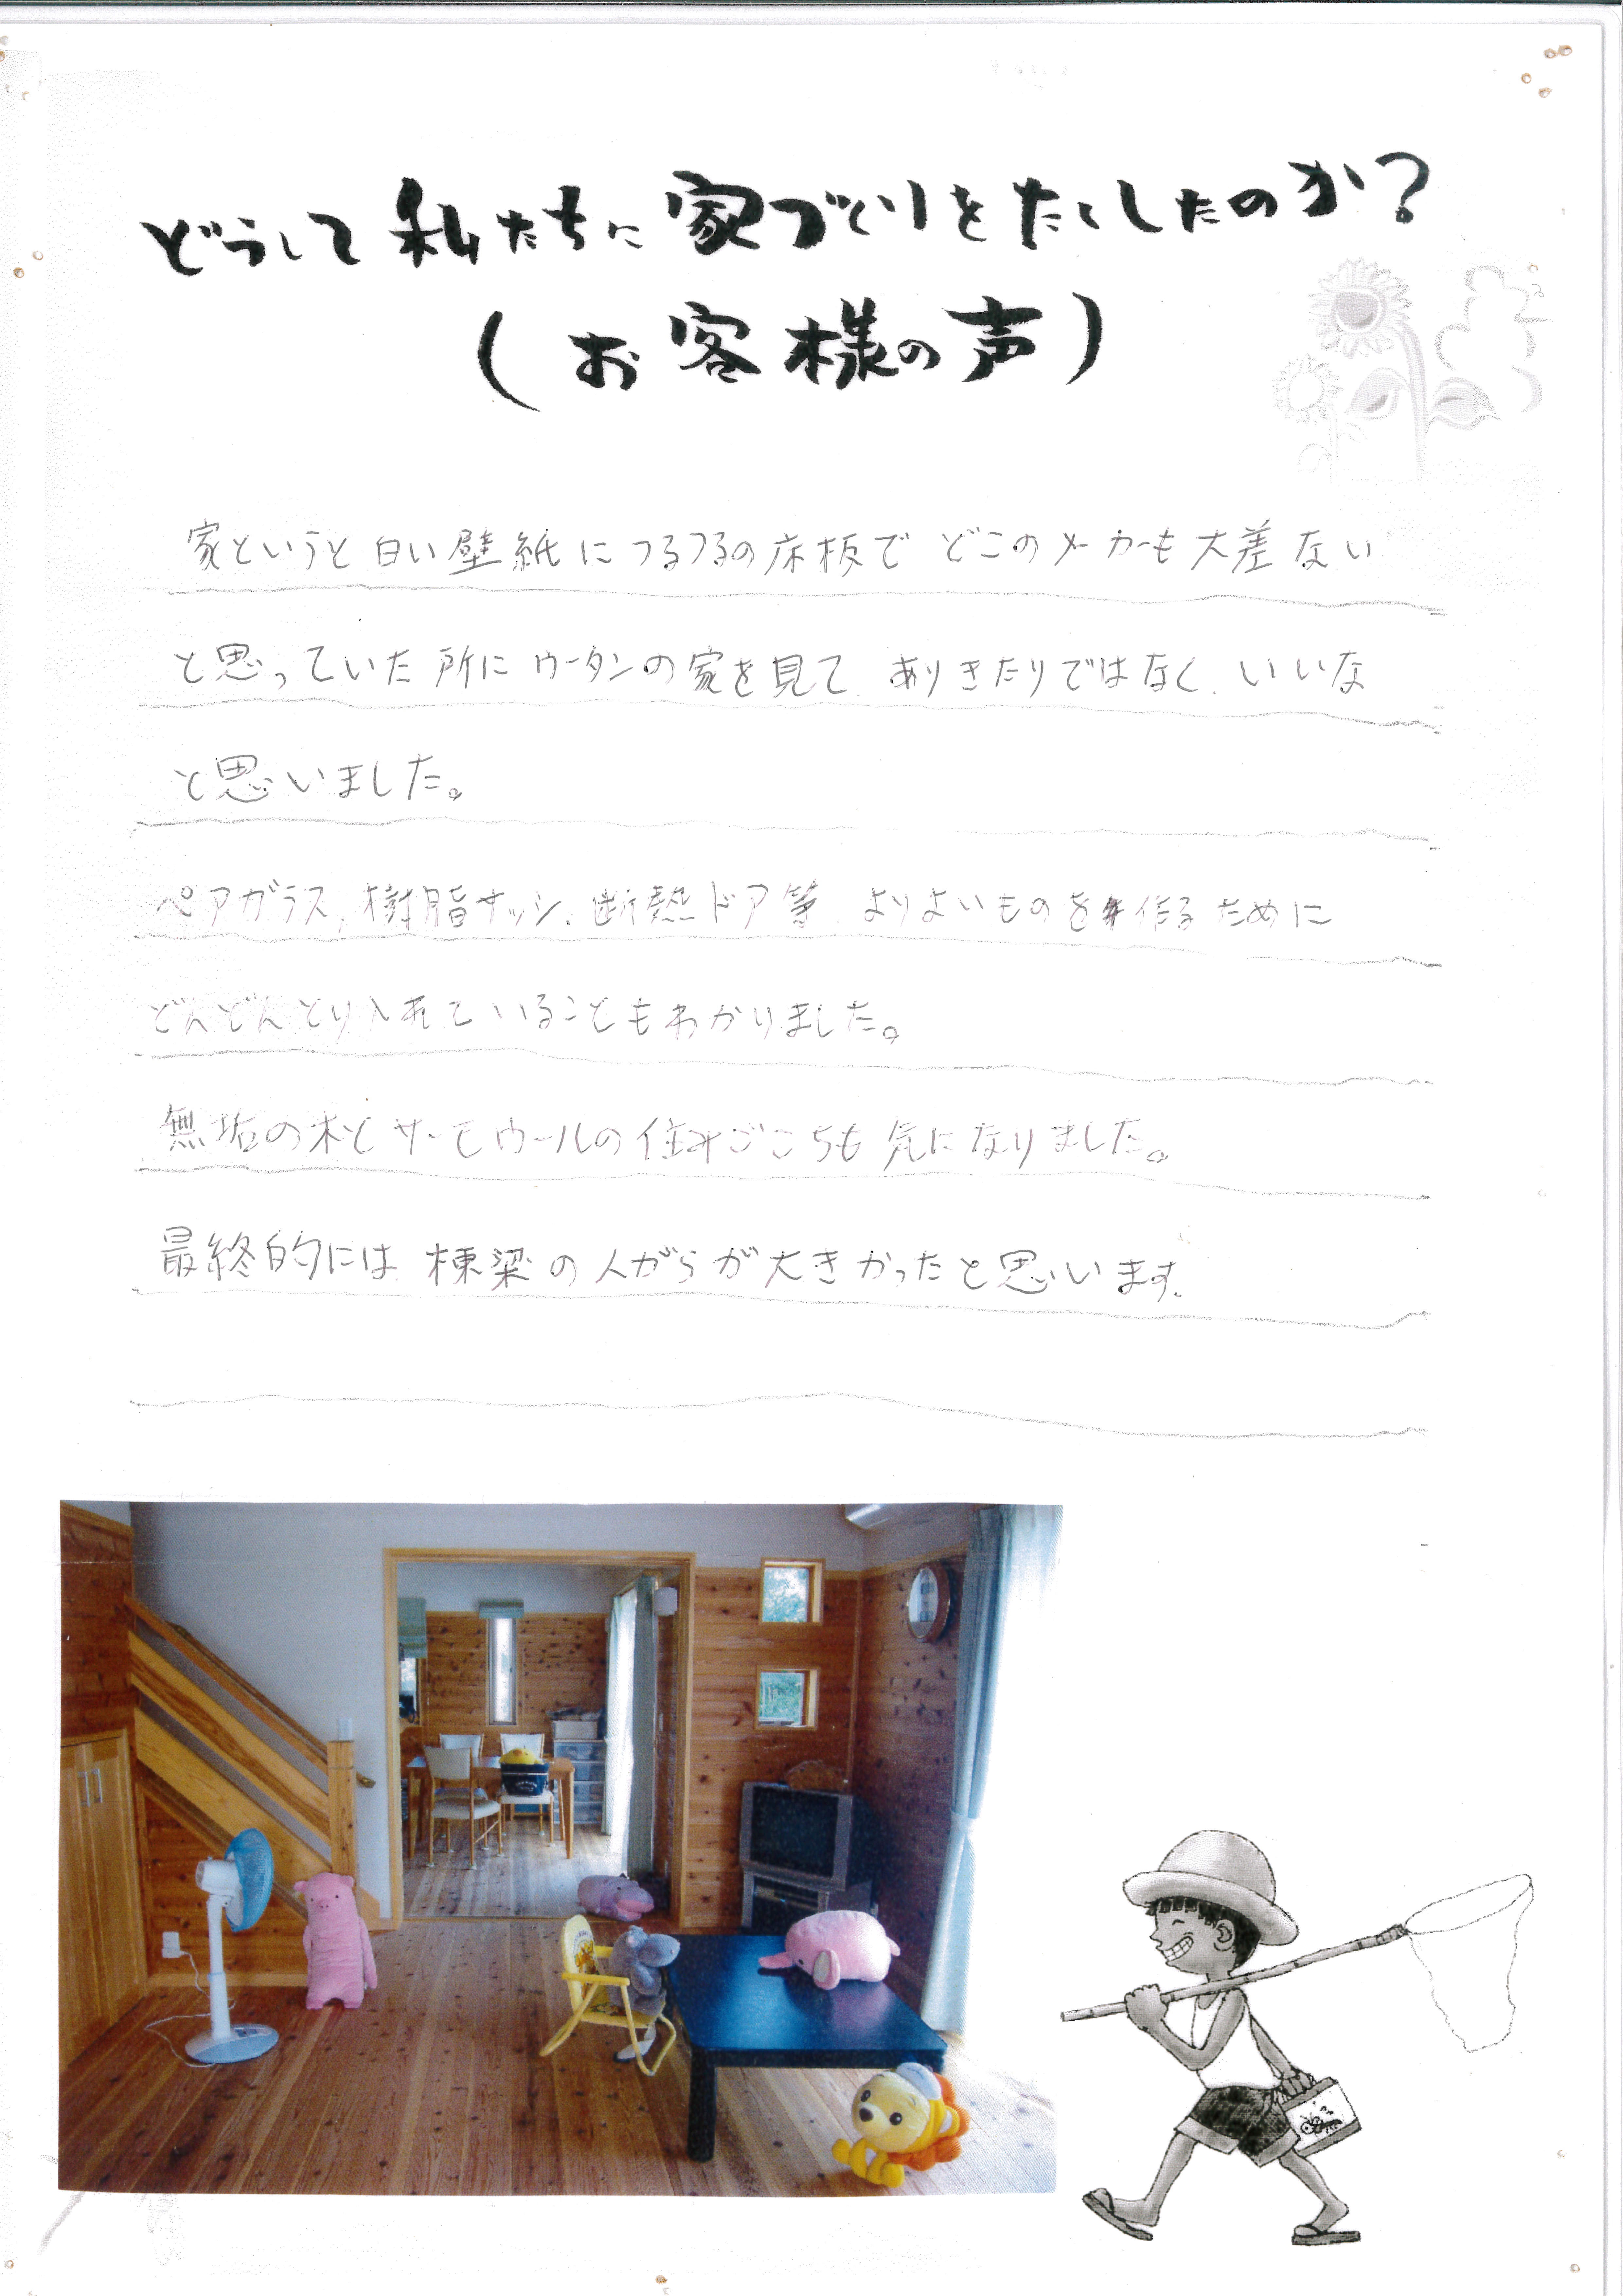 どうして私たちに家づくりをたくしたのか?
(お客様の声)
家というと白い壁紙につるつるの床板でどこのメーカーも大差ない
と思っていた所にウータンの家を見て、ありきたりではなく、いいな
と思いました。
ペアガラス、樹脂サッシ、断熱ドア等、よりよいものを作るために
どんどんとり入れていることもわかりました。
無垢の木とサーモウールの住みごこちも気になりました。
最終的には、棟梁の人がらが大きかったと思います。